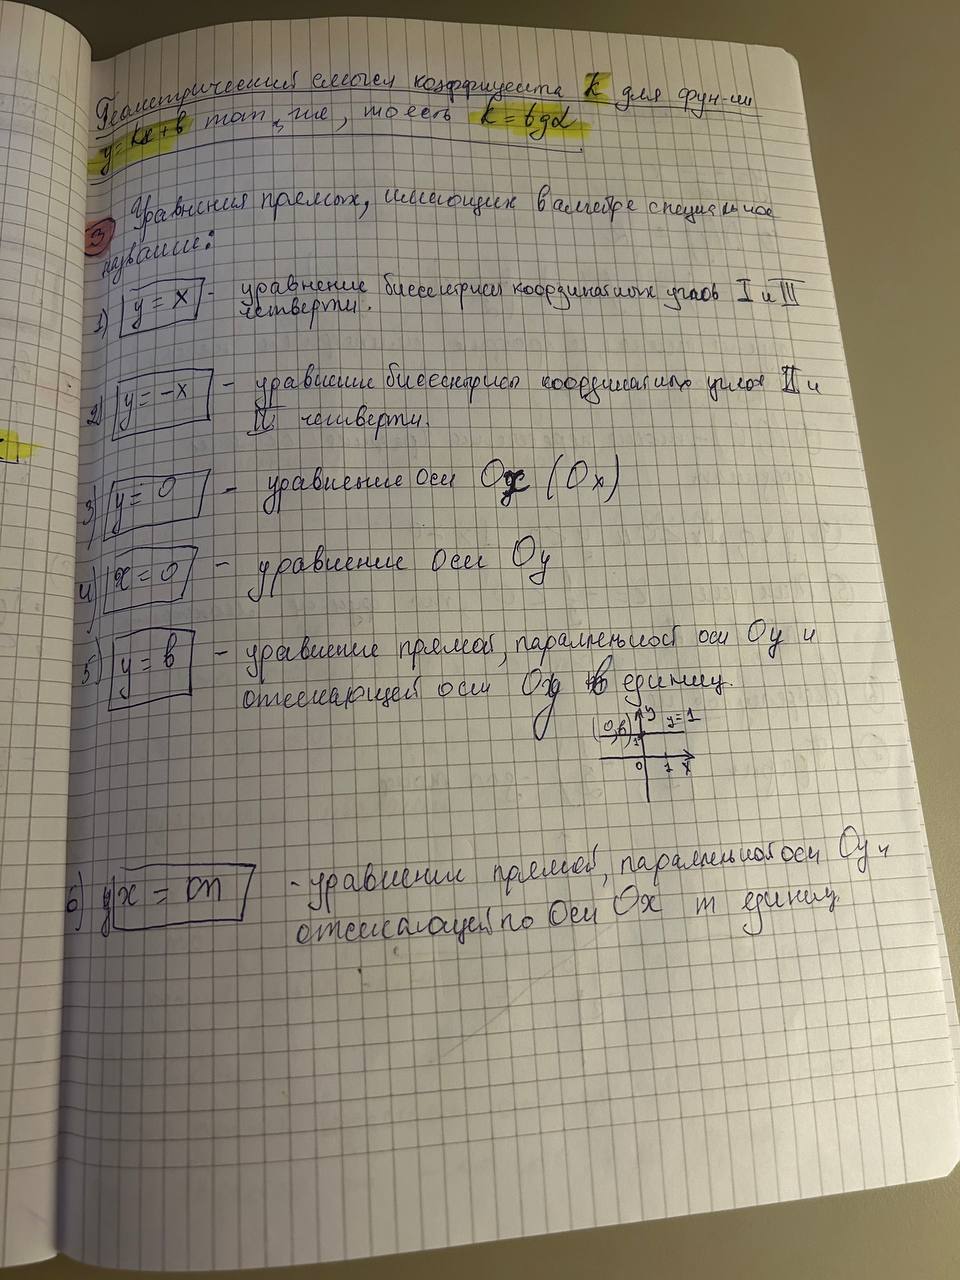 Геометрический смысл коэффицента k для фун-ии
y = kx + b тот же, то есть k = tgα
3 Уравнения прямых, имеющих в алгебре специальное
название:
1) y = x - уравнение биссектрисы координатных углов I и III
четверти.
2) y = -x - уравнение биссектрисы координатных углов II и
IV четверти.
3) y = 0 - уравнение оси Ox (Ox)
4) x = 0 - уравнение оси Oy
5) y = b - уравнение прямой, параллельной оси Oy и
отсекающей оси Oy b единиц.
(0,b) 1 y y=1
0 1 x
6) x = m - уравнение прямой, параллельной оси Oy и
отсекающей по оси Ox m единиц